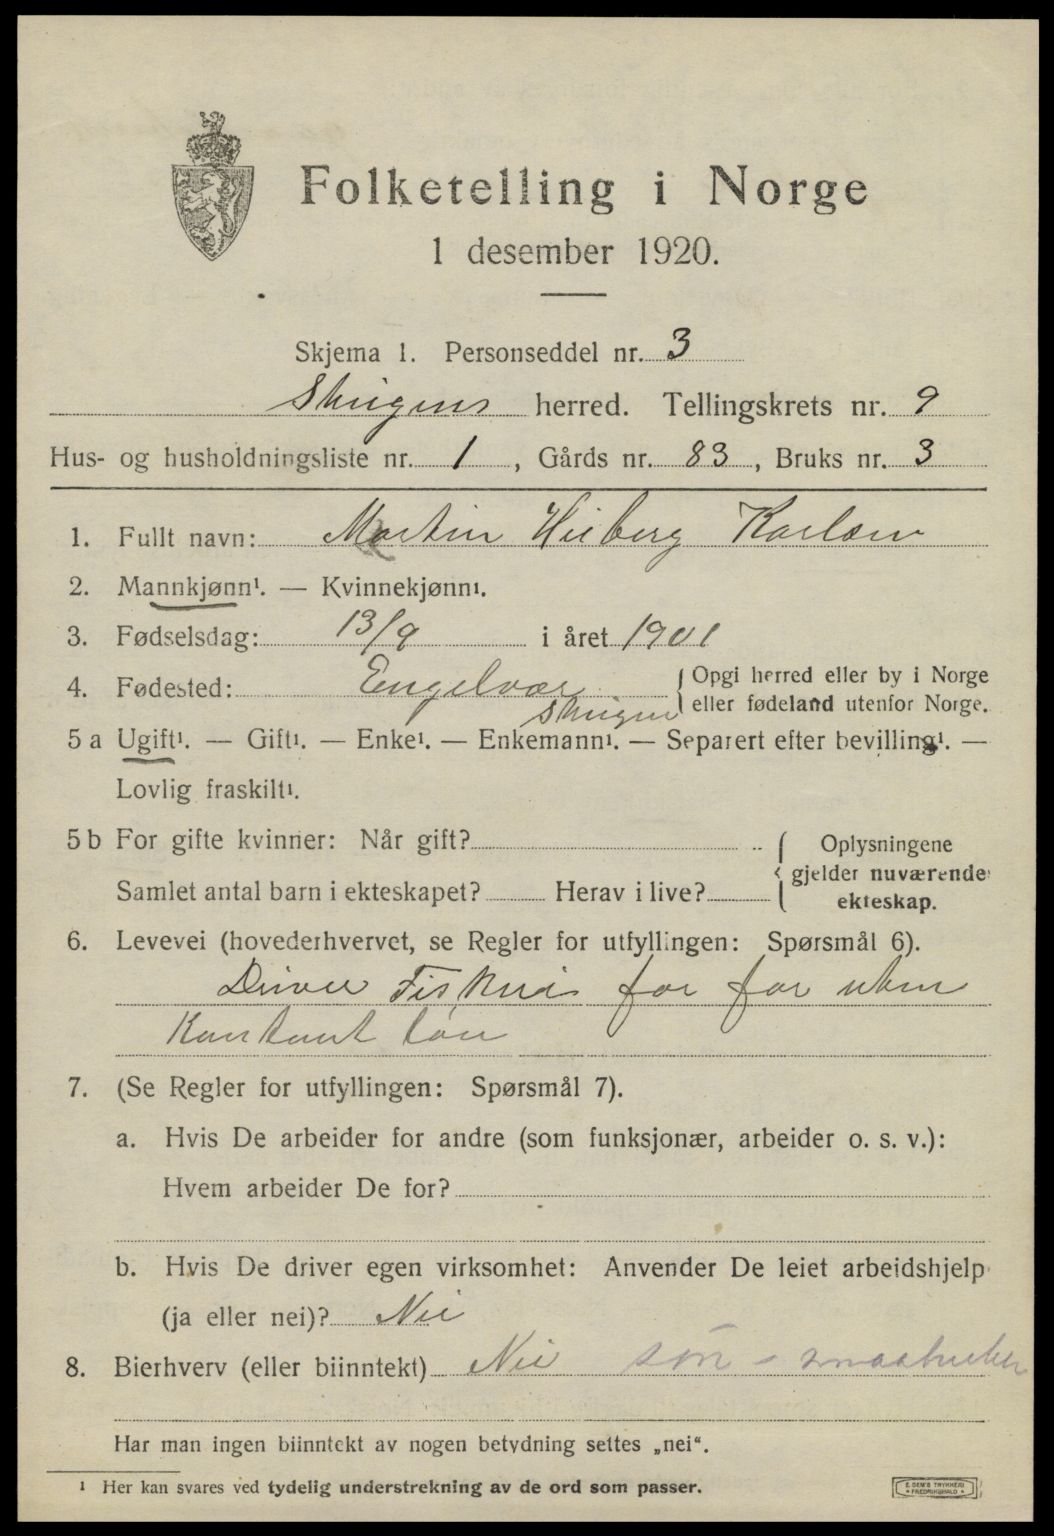 Folketelling i Norge
1 desember 1920.
Skjema 1. Personseddel nr. 3
herred. Tellingskrets nr. 9
Hus- og husholdningsliste nr. 1, Gårds nr. 83, Bruks nr. 3
1. Fullt navn: Martin Hilberg Karlsen
2. Mannkjønn¹. — Kvinnekjønn¹.
3. Fødselsdag: 13/9 i året 1901
4. Fødested: Engelvær { Opgi herred eller by i Norge
eller fødeland utenfor Norge.
5 a Ugift¹. — Gift¹. — Enke¹. — Enkemann¹. — Separert efter bevilling¹. —
Lovlig fraskilt¹.
5 b For gifte kvinner: Når gift? { Oplysningene
gjelder nuværende
Samlet antal barn i ekteskapet? Herav i live?
ekteskap.
6. Levevei (hovederhvervet, se Regler for utfyllingen: Spørsmål 6).
Driver Fiskeri for far uten
Konstant løn
7. (Se Regler for utfyllingen: Spørsmål 7).
a. Hvis De arbeider for andre (som funksjonær, arbeider o. s. v.):
Hvem arbeider De for?
b. Hvis De driver egen virksomhet: Anvender De leiet arbeidshjelp
(ja eller nei)? Nei
8. Bierhverv (eller biinntekt) Nei søn - smaabruker
Har man ingen biinntekt av nogen betydning settes „nei“.
¹ Her kan svares ved tydelig understrekning av de ord som passer.
E. SEM'S TRYKKERI
FREDRIKSHALD